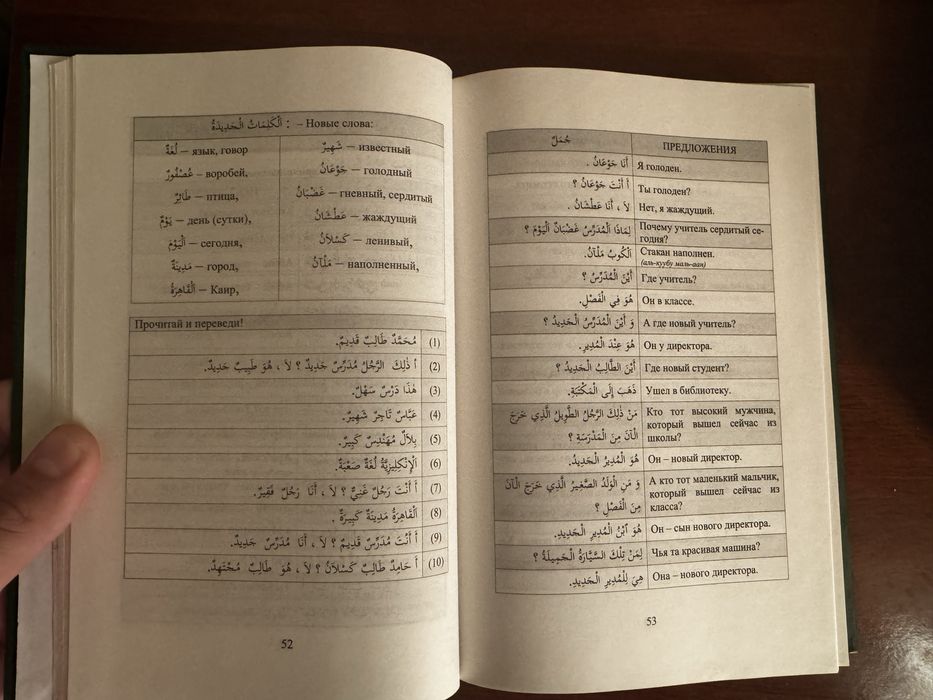 اَلْكَلِمَاتُ الْجَدِيدَةُ : – Новые слова:
لُغَةٌ — язык, говор
عُصْفُورٌ – воробей,
طَائِرٌ — птица,
يَوْمٌ — день (сутки),
اَلْيَوْمَ — сегодня,
مَدِينَةٌ — город,
اَلْقَاهِرَةُ – Каир,
شَهِيرٌ — известный
جَوْعَانُ — голодный
غَضْبَانُ — гневный, сердитый
عَطْشَانُ — жаждущий
كَسْلاَنُ — ленивый,
مَلْآنُ — наполненный,
Прочитай и переведи!
(1) مُحَمَّدٌ طَالِبٌ قَدِيمٌ.
(2) أ ذٰلِكَ الرَّجُلُ مُدَرِّسٌ جَدِيدٌ ؟ لاَ ، هُوَ طَبِيبٌ جَدِيدٌ.
(3) هٰذَا دَرْسٌ سَهْلٌ.
(4) عَبَّاسٌ تَاجِرٌ شَهِيرٌ.
(5) بِلاَلٌ مُهَنْدِسٌ كَبِيرٌ.
(6) اَلْإِنْكِلِيزِيَّةُ لُغَةٌ صَعْبَةٌ.
(7) أ أَنْتَ رَجُلٌ غَنِيٌّ ؟ لاَ ، أَنَا رَجُلٌ فَقِيرٌ.
(8) اَلْقَاهِرَةُ مَدِينَةٌ كَبِيرَةٌ .
(9) أ أَنْتَ مُدَرِّسٌ قَدِيمٌ ؟ لاَ ، أَنَا مُدَرِّسٌ جَدِيدٌ.
(10) أ حَامِدٌ طَالِبٌ كَسْلاَنُ ؟ لاَ ، هُوَ طَالِبٌ مُجْتَهِدٌ.
52
جُمَلٌ ПРЕДЛОЖЕНИЯ
أَنَا جَوْعَانُ . Я голоден.
أ أَنْتَ جَوْعَانُ ؟ Ты голоден?
لاَ ، أَنَا عَطْشَانُ . Нет, я жаждущий.
لِمَاذَا اَلْمُدَرِّسُ غَضْبَانُ اَلْيَوْمَ ؟ Почему учитель сердитый се-
годня?
اَلْكُوبُ مَلْآنُ. Стакан наполнен.
(аль-куубу маль-аан)
أَيْنَ الْمُدَرِّسُ ؟ Где учитель?
هُوَ فِي الْفَصْلِ. Он в классе.
وَ أَيْنَ الْمُدَرِّسُ الْجَدِيدُ ؟ А где новый учитель?
هُوَ عِنْدَ الْمُدِيرِ. Он у директора.
أَيْنَ الطَّالِبُ الْجَدِيدُ ؟ Где новый студент?
ذَهَبَ إِلَى الْمَكْتَبَةِ. Ушел в библиотеку.
مَنْ ذٰلِكَ الرَّجُلُ الطَّوِيلُ الَّذِي خَرَجَ Кто тот высокий мужчина,
который вышел сейчас из
الْآنَ مِنَ الْمَدْرَسَةِ ؟ школы?
هُوَ الْمُدِيرُ الْجَدِيدُ. Он – новый директор.
وَ مَنِ الْوَلَدُ الصَّغِيرُ الَّذِي خَرَجَ الْآنَ А кто тот маленький мальчик,
который вышел сейчас из
مِنَ الْفَصْلِ ؟ класса?
هُوَ ابْنُ الْمُدِيرِ الْجَدِيدِ. Он – сын нового директора.
لِمَنْ تِلْكَ السَّيَّارَةُ الْجَمِيلَةُ ؟ Чья та красивая машина?
هِيَ لِلْمُدِيرِ الْجَدِيدِ. Она – нового директора.
53